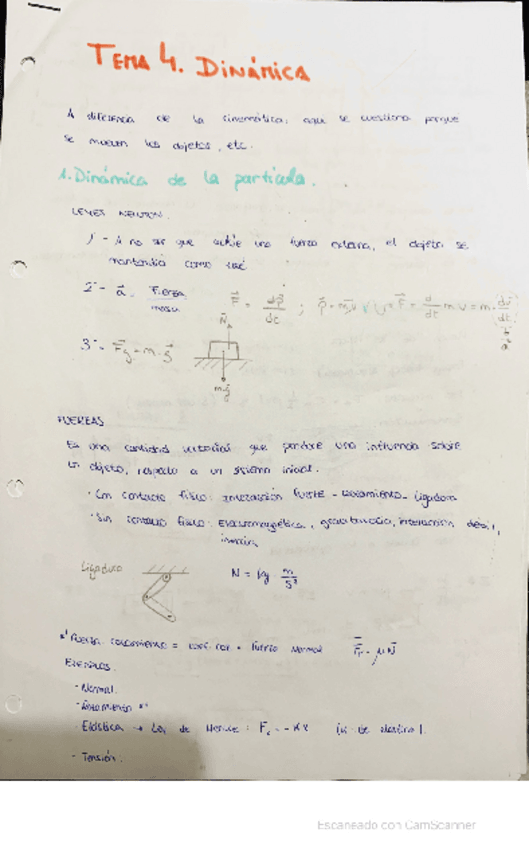 TEMA 4. DINÁMICA
A diferencia de la cinemática, aquí se cuestiona porque
se mueven los objetos, etc.
1. Dinámica de la partícula.
LEYES NEWTON.
1ª - A no ser que actúe una fuerza externa, el objeto se
mantendrá como está
2ª - a. Fuerza
masa
F = dp/dt ; p = m·v
d/dt m v = m · dv/dt
N
3ª - Fg = m·g
m·g
FUERZAS
Es una cantidad vectorial que produce una influencia sobre
un objeto, respecto a un sistema inicial.
· Con contacto físico: Interacción fuerte - Rozamiento - Ligadura
· Sin contacto físico: Electromagnética, gravitatoria, interacción débil,
inercia
Ligadura
N = kg m/s²
*¹ Fuerza rozamiento = coef. roz · fuerza normal Fr = μN
EJEMPLOS.
- Normal.
- Rozamiento *¹
- Elástica → Ley de Hooke: Fe = -Kx
- Tensión.
Escaneado con CamScanner